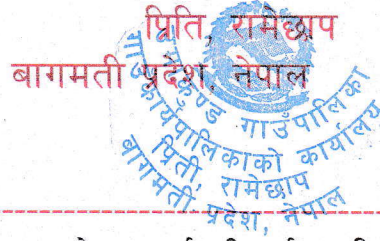 प्रिति, रामेछाप
बागमती प्रदेश, नेपाल
गाउँपालिका
गाउँ कार्यपालिकाको कार्यालय
प्रिती, रामेछाप
बागमती प्रदेश, नेपाल